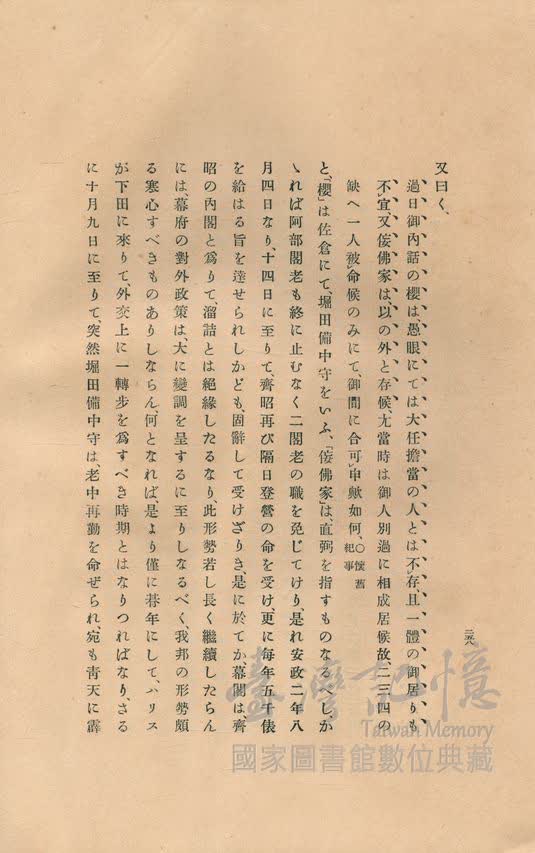 又曰く、
過日御內話の櫻は、愚眼にては大任擔當の人とは不存、且一體の御居りも
不宜、又侫佛家は、以の外と存候、尤當時は御人別過に相成居候故、二三四の
缺へ一人被命候のみにて、御間に合可申歟如何、〇懷舊紀事
と、「櫻」は佐倉にて、堀田備中守をいふ、「侫佛家」は、直弼を指すものなるべし、か
ゝれば阿部閣老も終に止むなく二閣老の職を免じてけり、是れ安政二年八
月四日なり、十四日に至りて、齊昭再び隔日登營の命を受け、更に每年五千俵
を給はる旨を達せられしかども、固辭して受けざりき、是に於てか、幕閣は、齊
昭の內閣と爲りて、溜詰とは絕緣したるなり、此形勢若し長く繼續したらん
には、幕府の對外政策は、大に變調を呈するに至りしなるべく、我邦の形勢頗
る寒心すべきものありしならん、何となれば、是より僅に朞年にして、ハリス
が下田に來りて、外交上に一轉步を爲すべき時期とはなりつればなり、さる
に十月九日に至りて、突然堀田備中守は、老中再勤を命ぜられ、宛も靑天に霹
二六八
臺灣記憶
Taiwan Memory
國家圖書館數位典藏